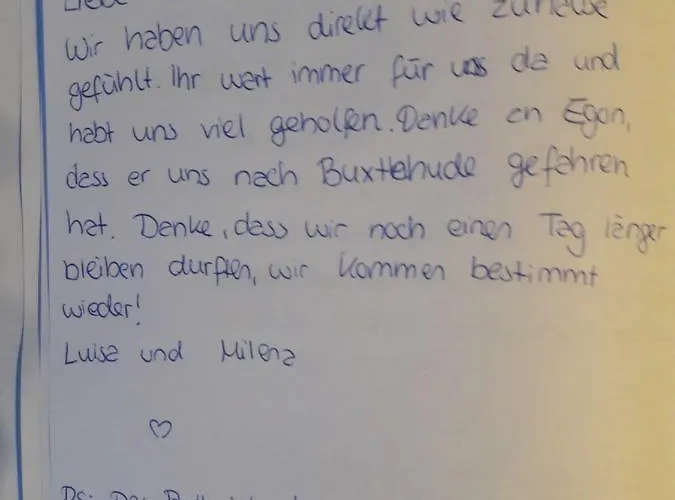 Liebe
Wir haben uns direkt wie zuhause
gefühlt. Ihr wart immer für uns da und
habt uns viel geholfen. Danke an Egon,
dass er uns nach Buxtehude gefahren
hat. Danke, dass wir noch einen Tag länger
bleiben durften, wir kommen bestimmt
wieder!
Luisa und Milena
♡
Ps: